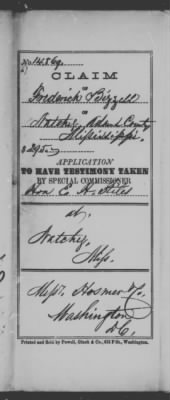 No. 14869.
CLAIM
OF
Frederick Bizzell
OF
Natchez, Adams County
Mississippi.
$ 295.
APPLICATION
TO HAVE TESTIMONY TAKEN
BY SPECIAL COMMISSIONER
Hon E. H. Stiles
at
Natchez,
Miss.
Messrs. Hosmer & Co.
Washington
D.C.
Printed and Sold by Powell, Ginck & Co., 633 F St., Washington.